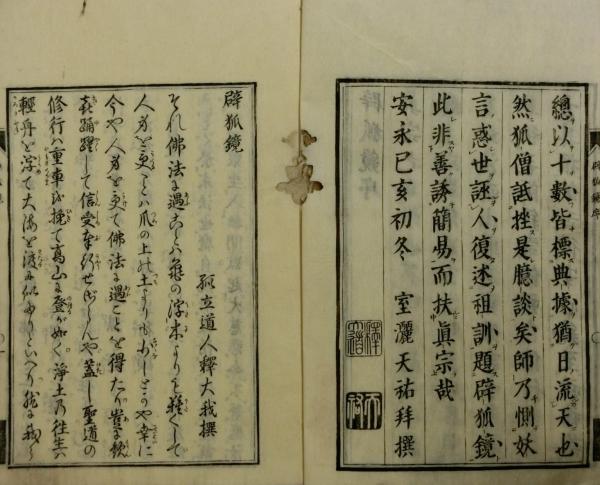 總以十數皆標典據猶日流天也
然狐僧詆挫是臆談矣師乃惻妖
言惑世誣人復述祖訓題辟狐鏡
此非善誘簡易而扶眞宗哉
安永己亥初冬 室灑天祐拜撰
辟狐鏡
孤立道人釋大我撰
それ佛法に遇ことは龜の浮木よりも難くして
人身を受ことは爪の上の土よりも少しとかや幸に
今や人身を受て佛法に遇ことを得たり豈に歓
喜踊躍して信受奉行せざらんや蓋し聖道の
修行は重車を挽て高山に登が如く淨土の往生は
輕舟を浮て大海を渡に似たりといへり然に我